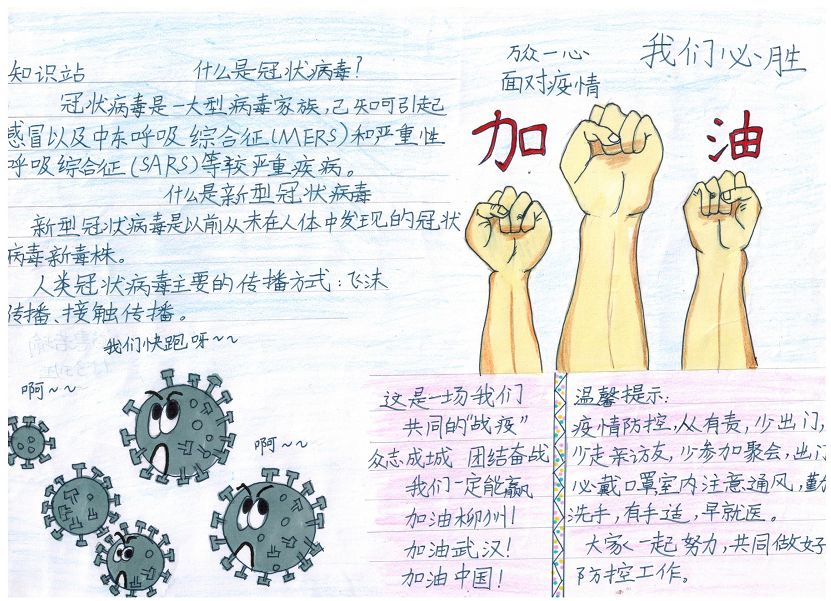 知识站
什么是冠状病毒?
冠状病毒是一大型病毒家族,已知可引起
感冒以及中东呼吸综合征(MERS)和严重性
呼吸综合征(SARS)等较严重疾病。
什么是新型冠状病毒
新型冠状病毒是以前从未在人体中发现的冠状
病毒新毒株。
人类冠状病毒主要的传播方式:飞沫
传播、接触传播。
我们快跑呀~~
啊~~
啊~~
万众一心
面对疫情
我们必胜
加油
这是一场我们
共同的“战疫”
众志成城 团结奋战
我们一定能赢
加油柳州!
加油武汉!
加油中国!
温馨提示:
疫情防控,人人有责,少出门,
少走亲访友,少参加聚会,出门
必戴口罩室内注意通风,勤
洗手,有不适,早就医。
大家一起努力,共同做好
防控工作。